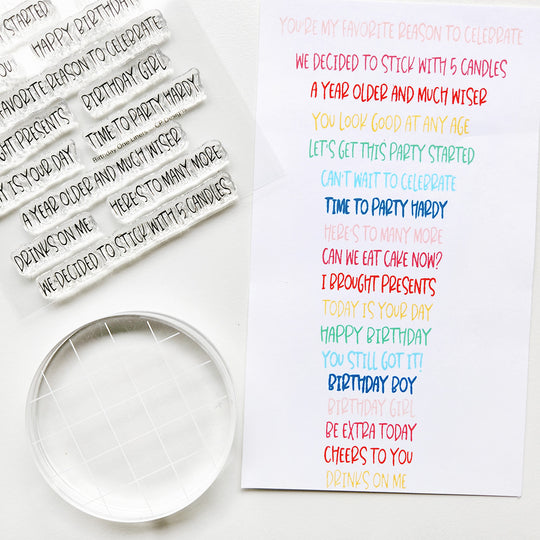 STARTED
HAPPY BIRTHDAY
YOU
FAVORITE REASON TO CELEBRATE
BIRTHDAY GIRL
PRESENTS
TIME TO PARTY HARDY
IS YOUR DAY
Birthday One Liners
A YEAR OLDER AND MUCH WISER
HERE'S TO MANY MORE
DRINKS ON ME
WE DECIDED TO STICK WITH 5 CANDLES
YOU'RE MY FAVORITE REASON TO CELEBRATE
WE DECIDED TO STICK WITH 5 CANDLES
A YEAR OLDER AND MUCH WISER
YOU LOOK GOOD AT ANY AGE
LET'S GET THIS PARTY STARTED
CAN'T WAIT TO CELEBRATE
TIME TO PARTY HARDY
HERE'S TO MANY MORE
CAN WE EAT CAKE NOW?
I BROUGHT PRESENTS
TODAY IS YOUR DAY
HAPPY BIRTHDAY
YOU STILL GOT IT!
BIRTHDAY BOY
BIRTHDAY GIRL
BE EXTRA TODAY
CHEERS TO YOU
DRINKS ON ME